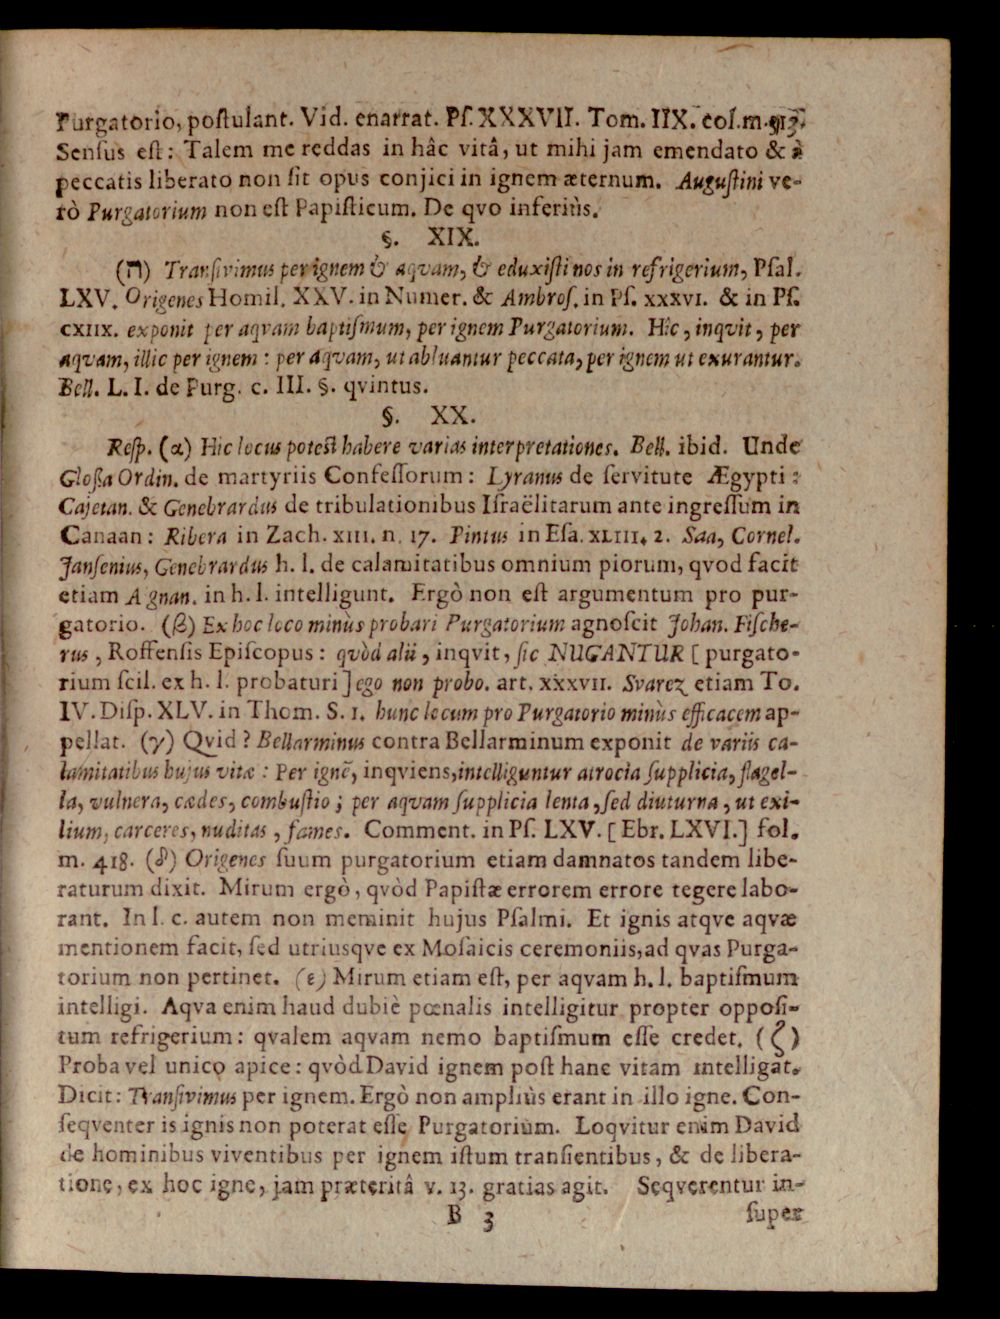 Purgatorio, poſtulant. Vid. enarrat. Pſ. XXXVII. Tom. IIX. col. m.
Senſus eſt: Talem me reddas in hâc vitâ, ut mihi jam emendato & à
peccatis liberato non ſit opus conjici in ignem æternum. Auguſtini ve-
rò Purgatorium non eſt Papiſticum. De qvo inferiùs.
§. XIX.
(ח) Tranſivimus per ignem & aqvam, & eduxiſti nos in refrigerium, Pſal.
LXV. Origenes Homil. XXV. in Numer. & Ambroſ. in Pſ. XXXVI. & in Pſ.
CXIIX. exponit per aqvam baptiſmum, per ignem Purgatorium. Hic, inqvit, per
aqvam, illic per ignem: per aqvam, ut abluantur peccata, per ignem ut exurantur.
Bell. L. I. de Purg. c. III. §. qvintus.
§. XX.
Reſp. (α) Hic locus poteſt habere varias interpretationes. Bell. ibid. Unde
Gloſſa Ordin. de martyriis Confeſſorum: Lyranus de ſervitute Ægypti:
Cajetan. & Genebrardus de tribulationibus Iſraëlitarum ante ingreſſum in
Canaan: Ribera in Zach. XIII. n. 17. Pintus in Eſa. XLIII. 2. Saa, Cornel.
Janſenius, Genebrardus h. l. de calamitatibus omnium piorum, qvod facit
etiam Agnan. in h. l. intelligunt. Ergò non eſt argumentum pro pur-
gatorio. (β) Ex hoc loco minùs probari Purgatorium agnoſcit Johan. Fiſche-
rus, Roffenſis Epiſcopus: qvòd alii, inqvit, ſic NUGANTUR [purgato-
rium ſcil. ex h. l. probaturi] ego non probo. art. XXXVII. Svarez etiam To.
IV. Diſp. XLV. in Thom. S. 1. hunc locum pro Purgatorio minùs efficacem ap-
pellat. (γ) Qvid? Bellarminus contra Bellarminum exponit de variis ca-
lamitatibus hujus vitæ: Per ignē, inqviens, intelliguntur atrocia ſupplicia, flagel-
la, vulnera, cædes, combuſtio; per aqvam ſupplicia lenta, ſed diuturna, ut exi-
lium, carceres, nuditas, fames. Comment. in Pſ. LXV. [Ebr. LXVI.] fol.
m. 418. (δ) Origenes ſuum purgatorium etiam damnatos tandem libe-
raturum dixit. Mirum ergò, qvòd Papiſtæ errorem errore tegere labo-
rant. In l. c. autem non meminit hujus Pſalmi. Et ignis atqve aqvæ
mentionem facit, ſed utriusqve ex Moſaicis ceremoniis, ad qvas Purga-
torium non pertinet. (ε) Mirum etiam eſt, per aqvam h. l. baptiſmum
intelligi. Aqva enim haud dubiè pœnalis intelligitur propter oppoſi-
tum refrigerium: qvalem aqvam nemo baptiſmum eſſe credet. (ζ)
Proba vel unico apice: qvòd David ignem poſt hanc vitam intelligat.
Dicit: Tranſivimus per ignem. Ergò non ampliùs erant in illo igne. Con-
ſeqventer is ignis non poterat eſſe Purgatorium. Loqvitur enim David
de hominibus viventibus per ignem iſtum tranſientibus, & de libera-
tione, ex hoc igne, jam præteritâ v. 13. gratias agit. Seqverentur in-
B 3 ſuper